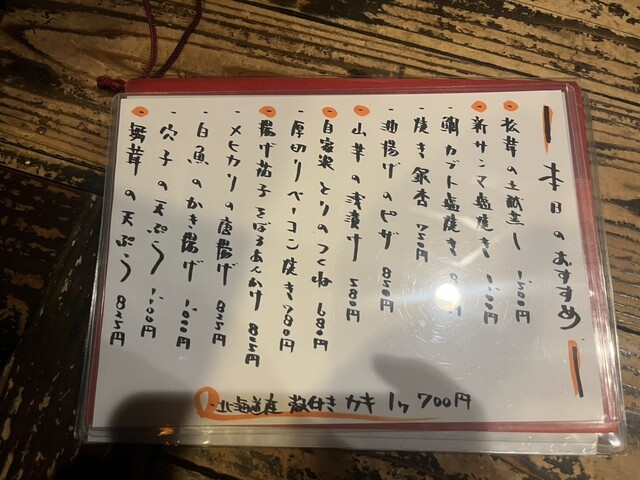 本日のおすすめ
松茸の土瓶蒸し 1,500円
新サンマ塩焼き 1,100円
鯛カブト塩焼き
焼き銀杏 750円
油揚げのピザ 850円
山芋の浅漬け 580円
自家製とりのつくね 680円
厚切りベーコン焼き 780円
揚げ茄子そぼろあんかけ 805円
メヒカリの唐揚げ 825円
白魚のかき揚げ 1,000円
穴子の天ぷら 1,100円
舞茸の天ぷら 825円
北海道産 殻付きカキ 1ヶ 700円